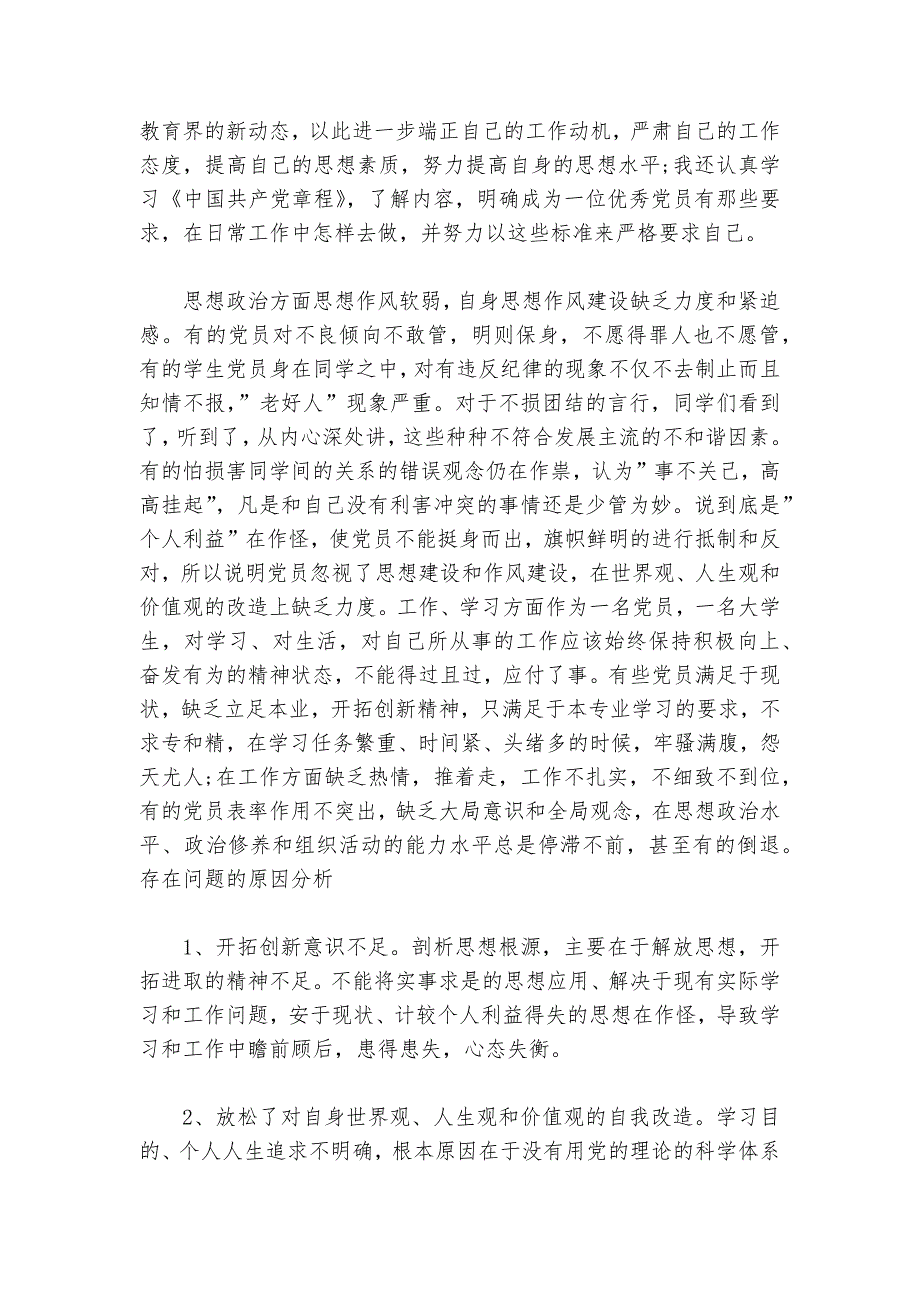 教育界的新动态，以此进一步端正自己的工作动机，严肃自己的工作
态度，提高自己的思想素质，努力提高自身的思想水平;我还认真学
习《中国共产党章程》，了解内容，明确成为一位优秀党员有那些要
求，在日常工作中怎样去做，并努力以这些标准来严格要求自己。
思想政治方面思想作风软弱，自身思想作风建设缺乏力度和紧迫
感。有的党员对不良倾向不敢管，明则保身，不愿得罪人也不愿管，
有的学生党员身在同学之中，对有违反纪律的现象不仅不去制止而且
知情不报，”老好人”现象严重。对于不损团结的言行，同学们看到
了，听到了，从内心深处讲，这些种种不符合发展主流的不和谐因素。
有的怕损害同学间的关系的错误观念仍在作祟，认为”事不关己，高
高挂起”，凡是和自己没有利害冲突的事情还是少管为妙。说到底是”
个人利益”在作怪，使党员不能挺身而出，旗帜鲜明的进行抵制和反
对，所以说明党员忽视了思想建设和作风建设，在世界观、人生观和
价值观的改造上缺乏力度。工作、学习方面作为一名党员，一名大学
生，对学习、对生活，对自己所从事的工作应该始终保持积极向上、
奋发有为的精神状态，不能得过且过，应付了事。有些党员满足于现
状，缺乏立足本业，开拓创新精神，只满足于本专业学习的要求，不
求专和精，在学习任务繁重、时间紧、头绪多的时候，牢骚满腹，怨
天尤人;在工作方面缺乏热情，推着走，工作不扎实，不细致不到位，
有的党员表率作用不突出，缺乏大局意识和全局观念，在思想政治水
平、政治修养和组织活动的能力水平总是停滞不前，甚至有的倒退。
存在问题的原因分析
1、开拓创新意识不足。剖析思想根源，主要在于解放思想，开
拓进取的精神不足。不能将实事求是的思想应用、解决于现有实际学
习和工作问题，安于现状、计较个人利益得失的思想在作怪，导致学
习和工作中瞻前顾后，患得患失，心态失衡。
2、放松了对自身世界观、人生观和价值观的自我改造。学习目
的、个人人生追求不明确，根本原因在于没有用党的理论的科学体系